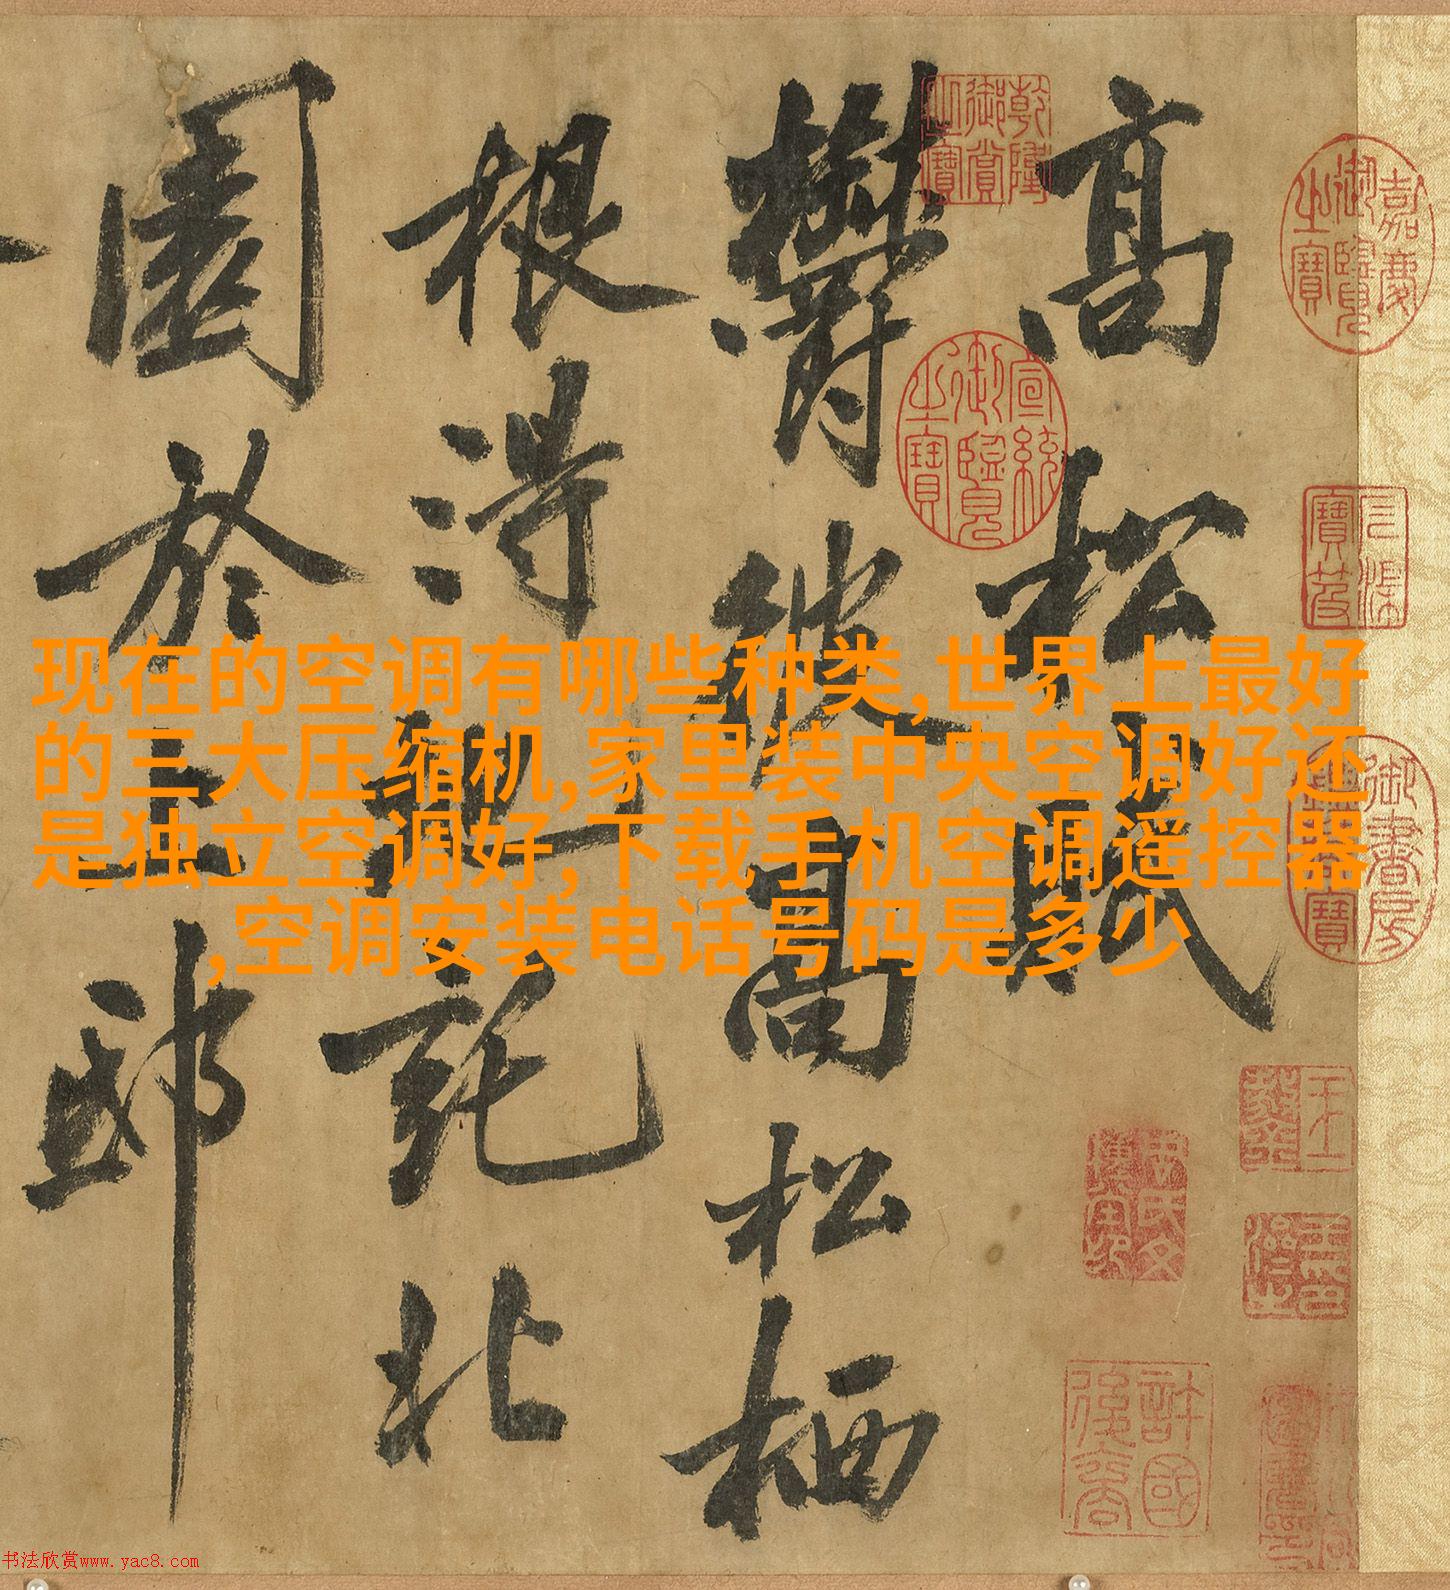 现在的空调有哪些种类,世界上最好
的三大压缩机,家里装中央空调好还
是独立空调好,下载手机空调遥控器
,空调安装电话号码是多少
高松賦
欝彼高松栖
根得地託北
園於上邸
嘉慶御覽之寶
宣統御覽之寶
乾隆御賞之寶
石渠寶笈
許國後裔
书法欣赏www.yac8.com